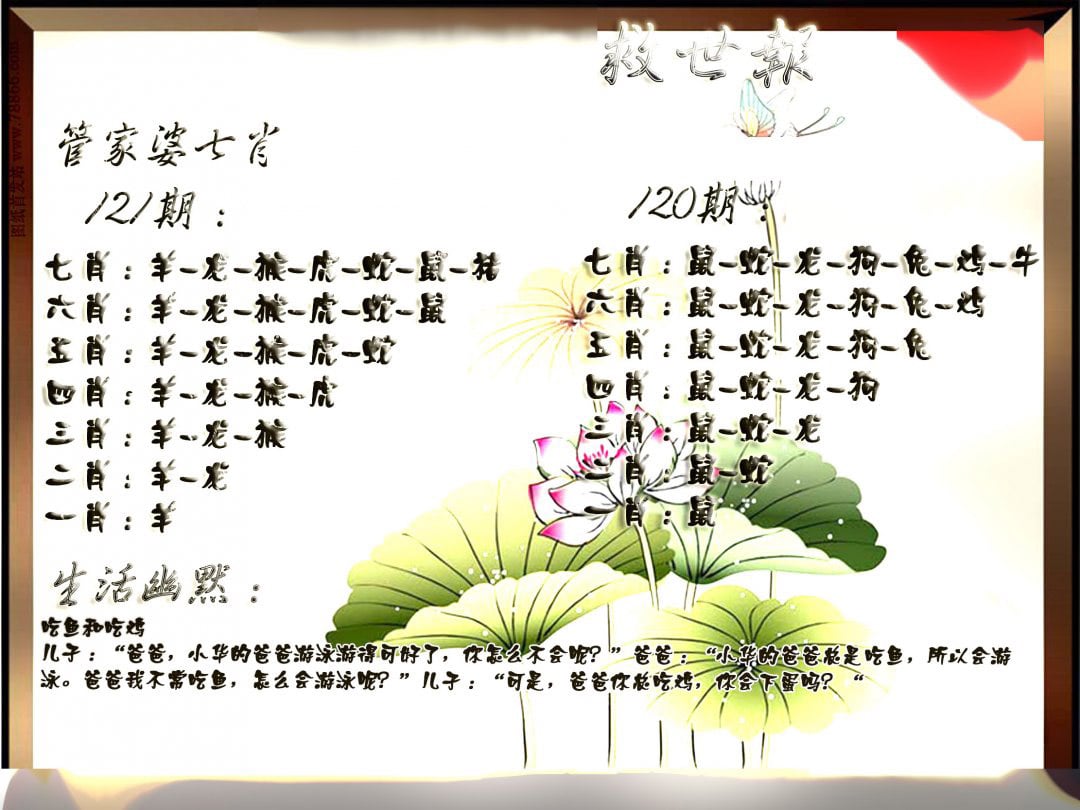 救世報
管家婆七肖
121期：
七肖：羊-龙-猴-虎-蛇-鼠-猪
六肖：羊-龙-猴-虎-蛇-鼠
五肖：羊-龙-猴-虎-蛇
四肖：羊-龙-猴-虎
三肖：羊-龙-猴
二肖：羊-龙
一肖：羊
120期：
七肖：鼠-蛇-龙-狗-兔-鸡-牛
六肖：鼠-蛇-龙-狗-兔-鸡
五肖：鼠-蛇-龙-狗-兔
四肖：鼠-蛇-龙-狗
三肖：鼠-蛇-龙
二肖：鼠-蛇
一肖：鼠
生活幽默：
吃鱼和吃鸡
儿子：“爸爸，小华的爸爸游泳游得可好了，你怎么不会呢？”爸爸：“小华的爸爸总是吃鱼，所以会游
泳。爸爸我不常吃鱼，怎么会游泳呢？”儿子：“可是，爸爸你总吃鸡，你会下蛋吗？“
图纸首发站 www.78866.com